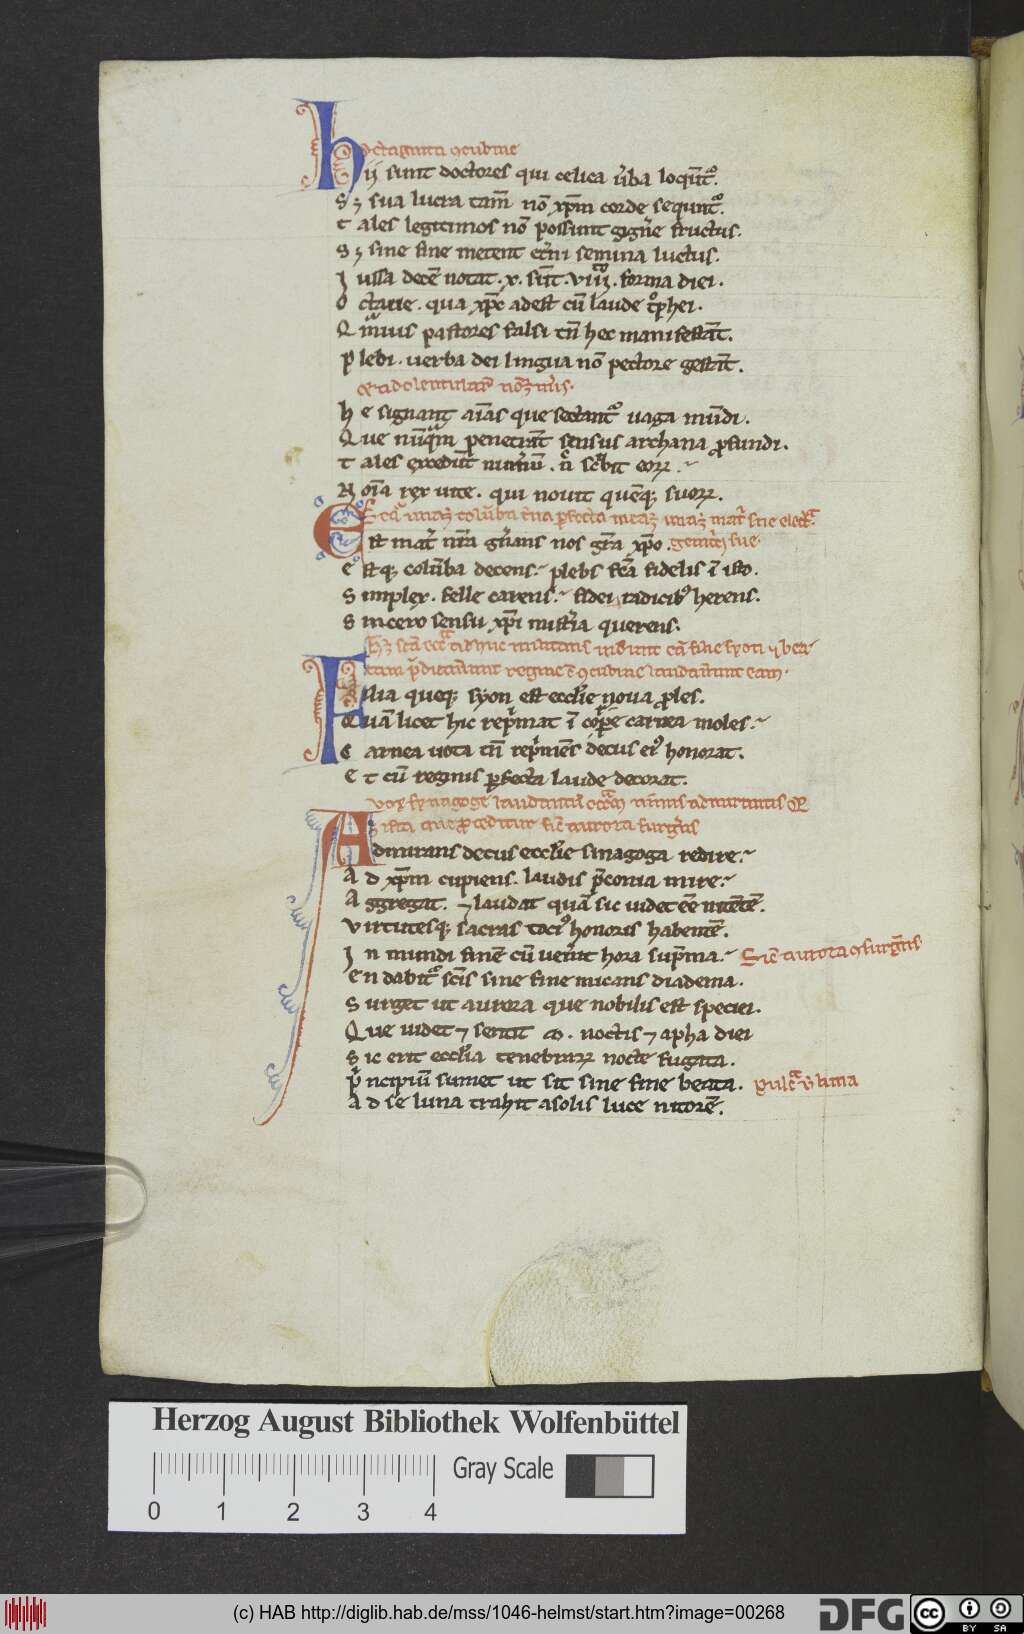 octaginta ɔcubine
Hij sunt doctores qui celica ũba loqũt᷒.
Sꝫ sua lucra tam̃ nõ xp̃m corde sequnt᷒.
Tales legitimos nõ possunt gigñe fructus.
Sꝫ sine fine metent et̃ni semina luctus.
Iussa decẽ notat .x. sũt .viii. forma diei.
Octaue . qua xp̃c adest cũ laude
Qͣmuis pastores falsi tñ hec manifestãt.
Plebi . uerba dei lingua nõ pectore gestãt.
He signant aĩas que sectant᷒ uaga mũdi.
Que nũqͣm penetrãt sensus archana ꝓfundi.
Tales excedũt numerũ . eoꝝ.
Noĩa rex uite . qui nouit quẽqꝫ suoꝝ.
Est mat̃ nr̃a gñans nos gr̃a xp̃o. genitͥci sue.
Estqꝫ colũba decens. plebs fidelis ĩ isto.
Simplex . felle carens. fidei radicibꝰ herens.
Sincero sensu xp̃i mist̃ia querens.
Filia queqꝫ syon est eccl̃ie noua ꝓles.
Quã licet hic rep̃mat ĩ corꝑe carnea moles.
Carnea uota tñ rep̃mẽs decus eiꝰ honorat.
Et cũ reginis ꝑfecta laude decorat.
Vox synagoge
ista que ꝓceditur sic̃ aurora surgẽs
Admirans decus eccl̃ie sinagoga redire.
Ad xp̃m cupiens. laudis p̃conia mire.
Aggregat. ⁊ laudat quã sic uidet ẽẽ nitẽtẽ.
Virtutesqꝫ sacras tociꝰ honoris habentẽ.
In mundi finẽ cũ ueñit hora sup̃ma. Sic̃ aurora ɔsurgẽs
En dabit᷒ scĩs sine fine micans diadema.
Surget ut aurora que nobilis est speciei.
Que uidet ⁊ sentit ω. noctis ⁊ apha diei
Sic erit eccl̃ia tenebraꝝ nocte fugata.
Pͥncipiũ sumet ut sit sine fine beata. Pulcͣ ut luna
Ad se luna trahit asolis luce nitorẽ.
Herzog August Bibliothek Wolfenbüttel
Gray Scale
0 1 2 3 4
(c) HAB http://diglib.hab.de/mss/1046-helmst/start.htm?image=00268
DFG
cc BY SA